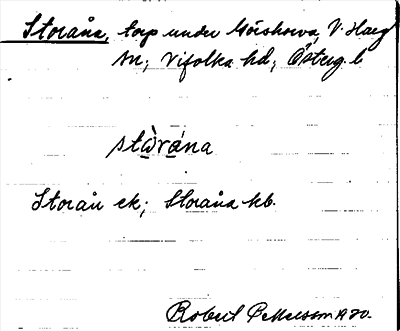 Storåna, torp under Görshorva, V. Harg
sn; Vifolka hd; Östeg. l
stὼrána
Storån ek; Storåna kb.
Robert Pettersson 1920.